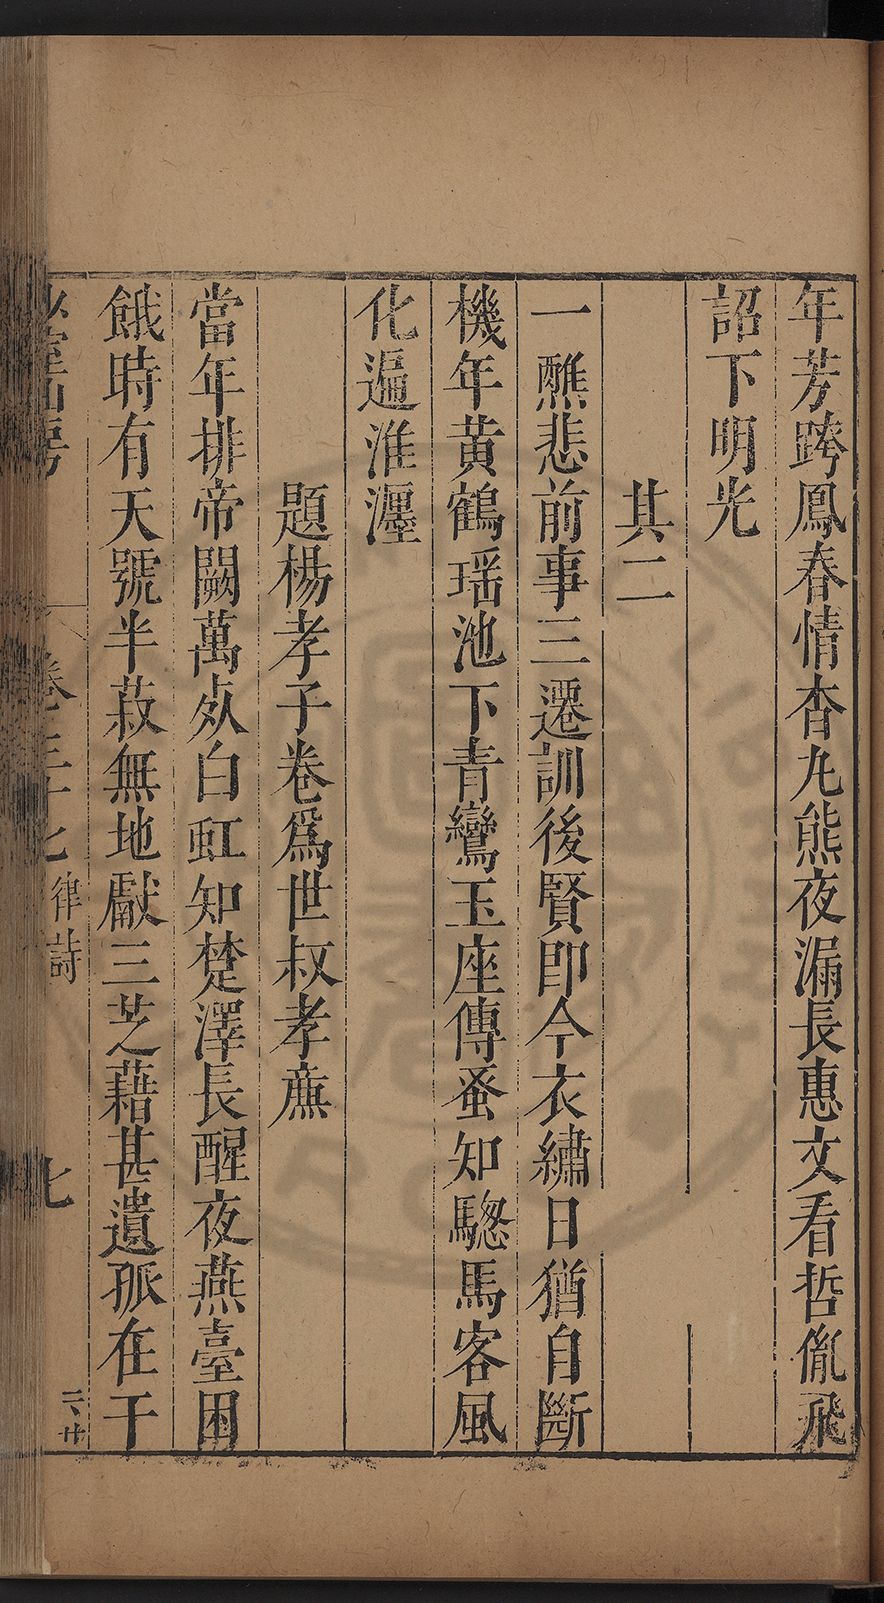 年芳跨鳳春情杳九熊夜漏長惠文看哲胤飛
詔下明光
其二
一醮悲前事三遷訓後賢即今衣繡日猶自斷
機年黃鶴瑶池下青鸞玉座傳蚤知驄馬客風
化遍淮瀍
題楊孝子卷爲世叔孝廉
當年排帝闕萬死白虹知楚澤長醒夜燕臺困
餓時有天號半菽無地獻三芝藉甚遺孤在于
卷三十七 律詩 七